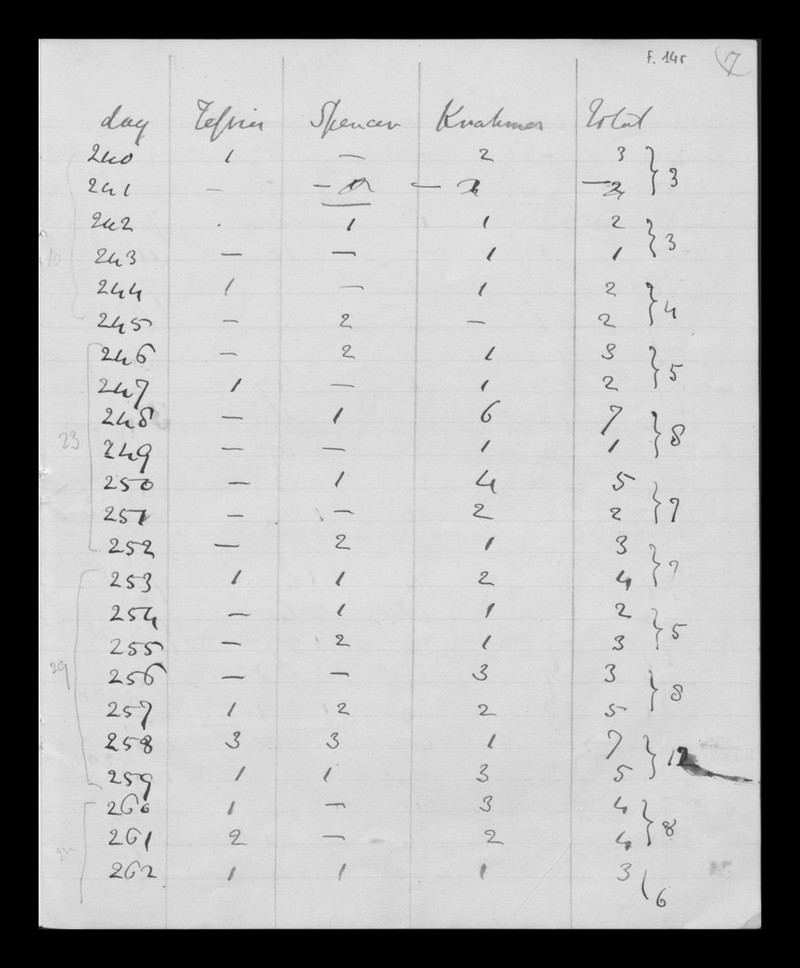 F. 14r 7
day Spencer Total
240 1 — 2 3 } 3
241 — — — —
242 . 1 1 2 } 3
243 — — 1 1
10
244 1 — 1 2 } 4
245 — 2 — 2
246 — 2 1 3 } 5
247 1 — 1 2
248 — 1 6 7 } 8
23
249 — — 1 1
250 — 1 4 5 } 7
251 — — 2 2
252 — 2 1 3 } 7
253 1 1 2 4
254 — 1 1 2 } 5
255 — 2 1 3
29
256 — — 3 3 } 8
257 1 2 2 5
258 3 3 1 7 } 12
259 1 1 3 5
260 1 — 3 4 } 8
261 2 — 2 4
262 1 1 1 3
6